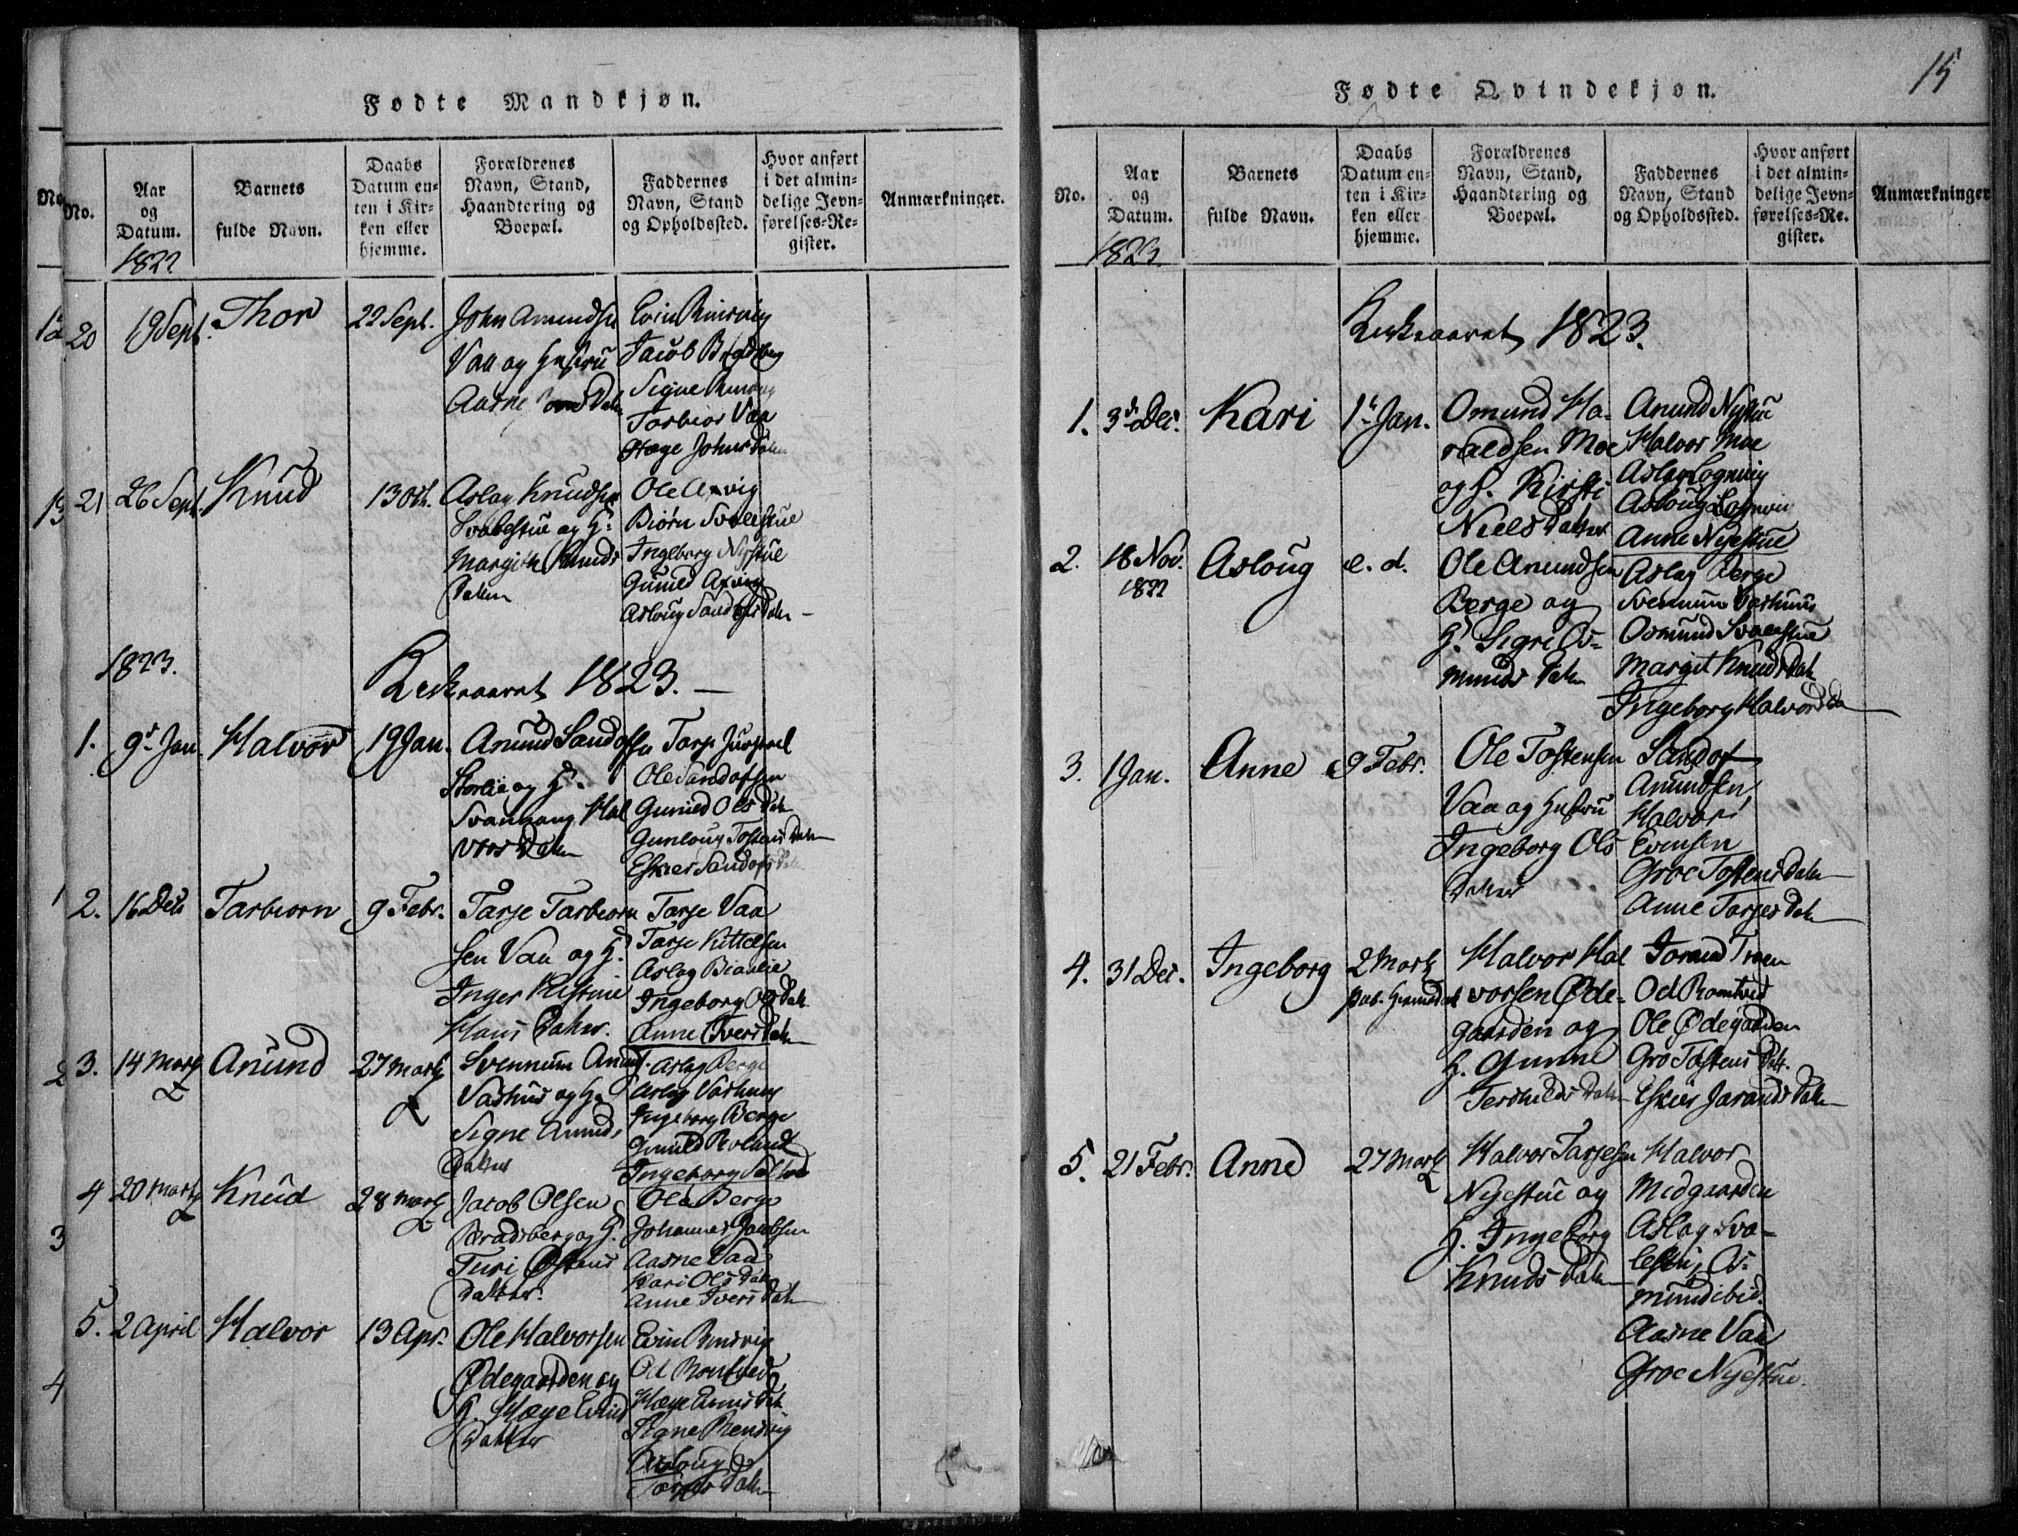 Fødte Mandkjøn.
No.
Aar
og
Datum.
Barnets
fulde Navn.
Daabs
Datum en-
ten i Kir-
ken eller
hjemme.
Forældrenes
Navn, Stand,
Haandtering og
Boepæl.
Faddernes
Navn, Stand
og Opholdssted.
Hvor anført
i det almin-
delige Jevn-
førelses-Re-
gister.
Anmærkninger.
1822
20
19 Sept.
Thor
22 Sept.
John Amundsen
Vaa og Hustru
Aasne
Evin
Jacob
Signe
Torbior Vaa
Hæge Johns Datter
21
26 Sept.
Knud
13 Oct.
Aslag Knudsen
Svalestue og H.
Margith Knuds
Datter
Ole Axvig
Biørn Svalestue
Ingeborg Nystue
Gunild Axvig
Asloug Sandofs Datr
1823.
Kirkeaaret 1823.
1.
9de Jan.
Halvor
19 Jan.
Anund Sandofsen
Storlie og H.
Svanaug Hal
vors Datter
Tarje
Ole Sandofsen
Gunild Ols Datr
Gunloug Tostens Datr
Eskier Sandofs Datr
2.
16 Decb
Tarbiorn
9 Febr.
Tarje Tarbiorn
sen Vaa og H.
Inger Kistine
Hans Datter.
Tarje Vaa
Tarje Kittelsen
Aslag Biaalie
Ingeborg Ols Datr
Anne Ivers Datr
3.
14 Marty
Anund
27 Marty
Svennum Anunds.
Vashuus og H.
Signe Anunds
Datter
Aslag Berge
Aslag Vashuus
Ingeborg Berge
Gunild Roland
Ingeborg
4
20 Marty
Knud
28 Marty
Jacob Olsen
Bradsberg og H.
Turi Østens
Datter.
Ole Berge
Johannes Jacobsen
Aasne Vaa
Kari Ols Datr
Anne Ivers Datr
5.
2 April
Halvor
13 Apr.
Ole Halvorsen
Ødegaarden og
H. Hæge Evinds
Datter
Evin
Od Romtved
Hæge Evinds Datr
Signe
Aslaug
Tarjes Datr
15
Fødte Qvindekjøn.
No.
Aar
og
Datum.
Barnets
fulde Navn.
Daabs
Datum en-
ten i Kir-
ken eller
hjemme.
Forældrenes
Navn, Stand,
Haandtering og
Boepæl.
Faddernes
Navn, Stand
og Opholdssted.
Hvor anført
i det almin-
delige Jevn-
førelses-Re-
gister.
Anmærkninger
1823.
Kirkeaaret 1823.
1.
3de Dec.
Kari
1te Jan.
Omund Ha-
raldsen Moe
og H. Kirsti
Niels Datter
Anund Nystue
Halvor Moe
Aslag Lognvig
Asloug Lognvig
Anne Nyestue
2.
18 Nov.
1822
Asloug
e. d.
Ole Anundsen
Berge og
H. Sigri Os-
munds Datter
Aslag Berge
Svennum Vashuus
Osmund Svalestue
Margit Knuds Datr
Ingeborg Halvors Da
3.
1 Jan.
Anne
9 Febr.
Ole Tostensen
Vaa og Hustru
Ingeborg Ols
Datter
Sandof
Anundsen,
Halvor
Evensen
Groe Tostens Datr
Anne Tarjes Datr
4.
31 Dec.
Ingeborg
2 Marty
Halvor Hal
vorsen Øde-
gaarden og
H. Gunne
Terchilds Datr
Jorand Troen
Od Romtved
Ole Ødegaarden
Gro Tostens Datr.
Eskier Jorands Datr
5.
21 Febr.
Anne
27 Marty
Halvor Tarjesen
Nyestue og
H. Ingeborg
Knuds Datr
Halvor
Midgaarden
Aslag Sva-
lestu, Os-
mund ibid.
Aasne Vaa
Groe Nyestue.